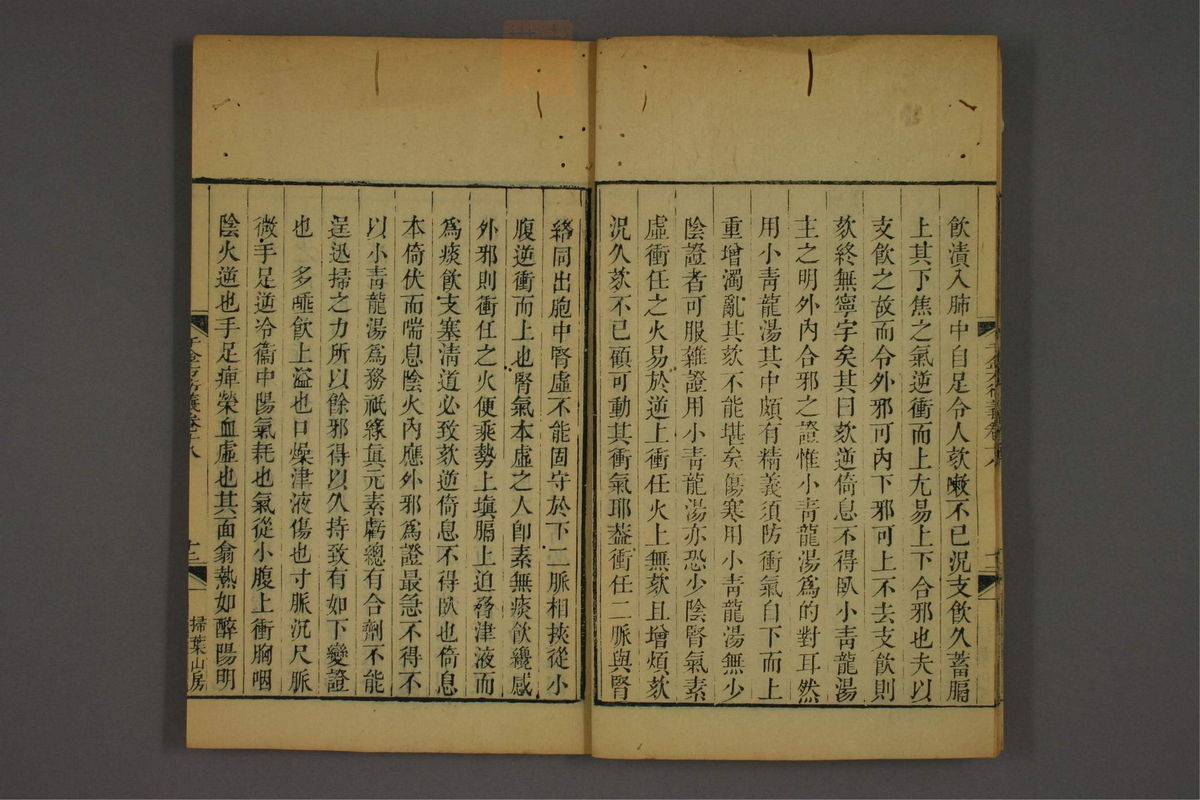 飲漬入肺中自足令人欬嗽不已況支飲久蓄膈
上其下焦之氣逆衝而上尢易上下合邪也夫以
支飲之故而令外邪可內下邪可上不去支飲則
欬終無寧宇矣其曰欬逆倚息不得臥小靑龍湯
主之明外內合邪之證惟小靑龍湯爲的對耳然
用小靑龍湯其中頗有精義須防衝氣自下而上
重增濁亂其欬不能堪矣傷寒用小靑龍湯無少
陰證者可服雜證用小靑龍湯亦恐少陰腎氣素
虛衝任之火易於逆上衝任火上無欬且增煩欬
況久欬不已頋可動其衝氣耶葢衝任二脈與腎
絡同出胞中腎虛不能固守於下二脈相挾從小
腹逆衝而上也腎氣本虛之人卽素無痰飲纔感
外邪則衝任之火便乘勢上塡膈上迫脅津液而
爲痰飲支塞淸道必致欬逆倚息不得臥也倚息
本倚伏而喘息陰火內應外邪爲證最急不得不
以小靑龍湯爲務祇緣眞元素虧總有合劑不能
逞迅掃之力所以餘邪得以久持致有如下變證
也　多唾飲上溢也口燥津液傷也寸脈沉尺脈
微手足逆冷衞中陽氣耗也氣從小腹上衝胸咽
陰火逆也手足痺榮血虛也其面翕熱如醉陽明
千金方衍義卷十八
十二
掃葉山房